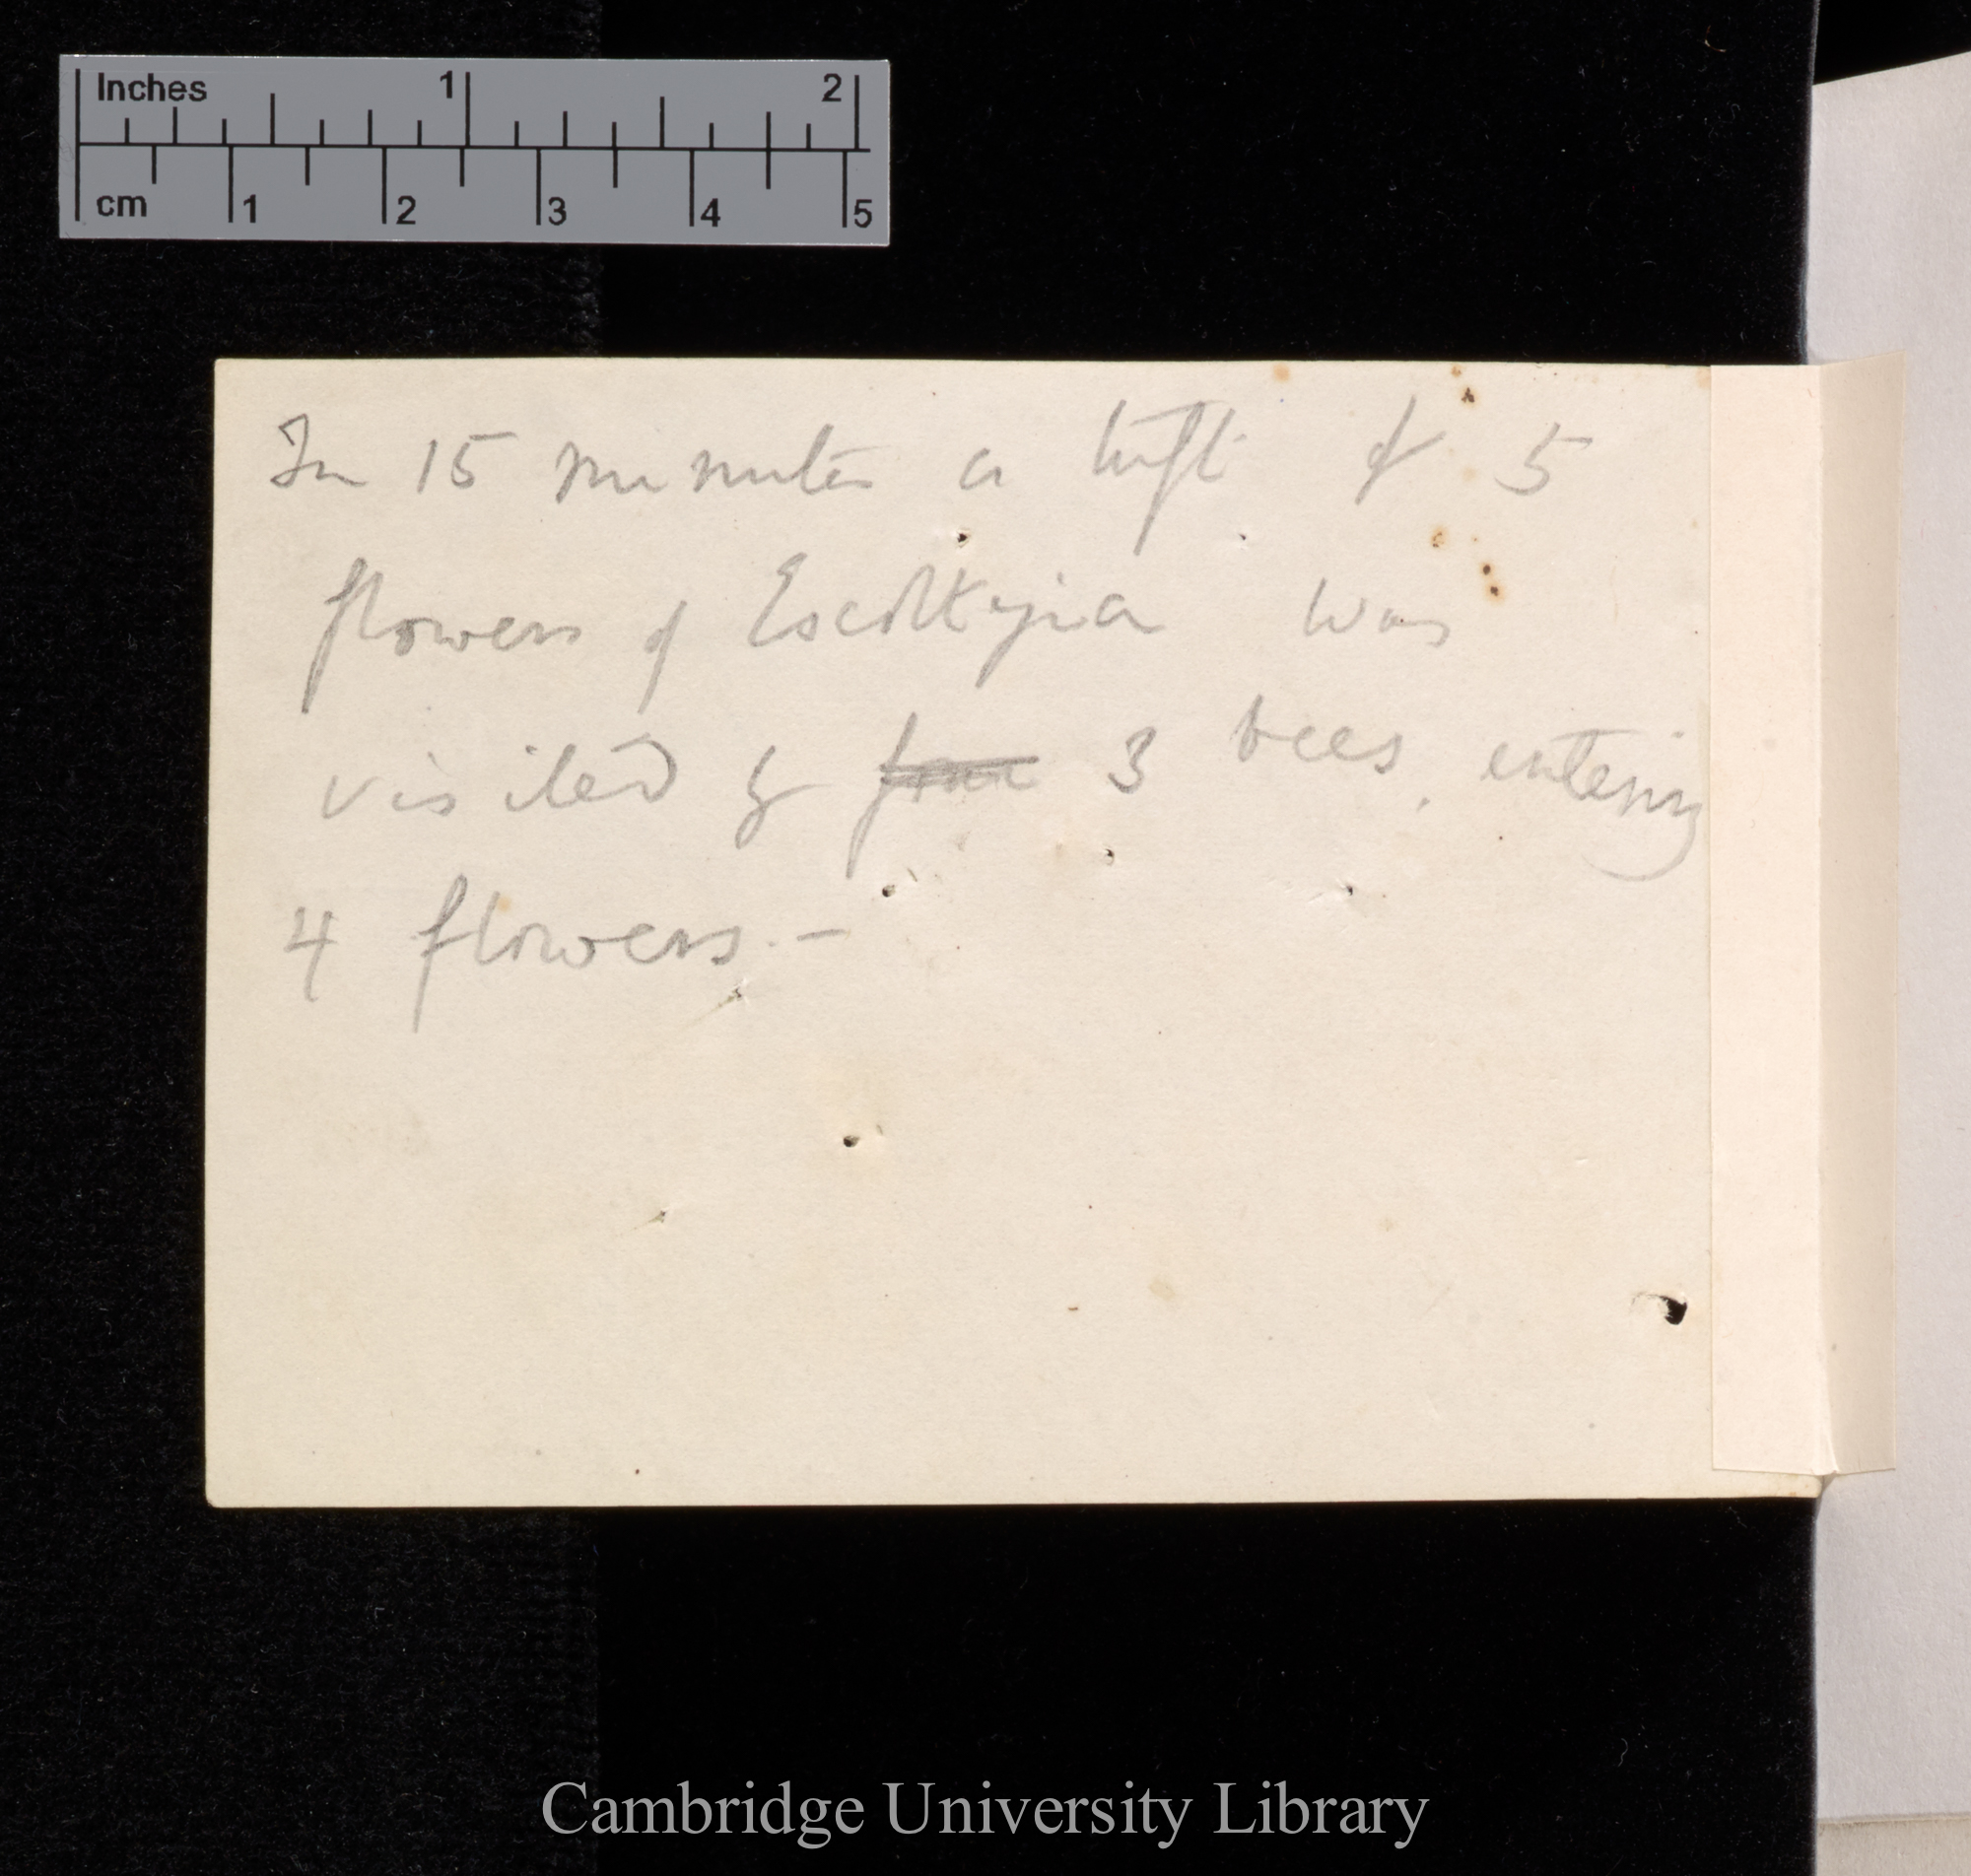 Inches 1 2
cm 1 2 3 4 5
In 15 minutes a tuft of 5
flowers of Escoltzjia was
visited by four 3 bees, entering
4 flowers. —
Cambridge University Library